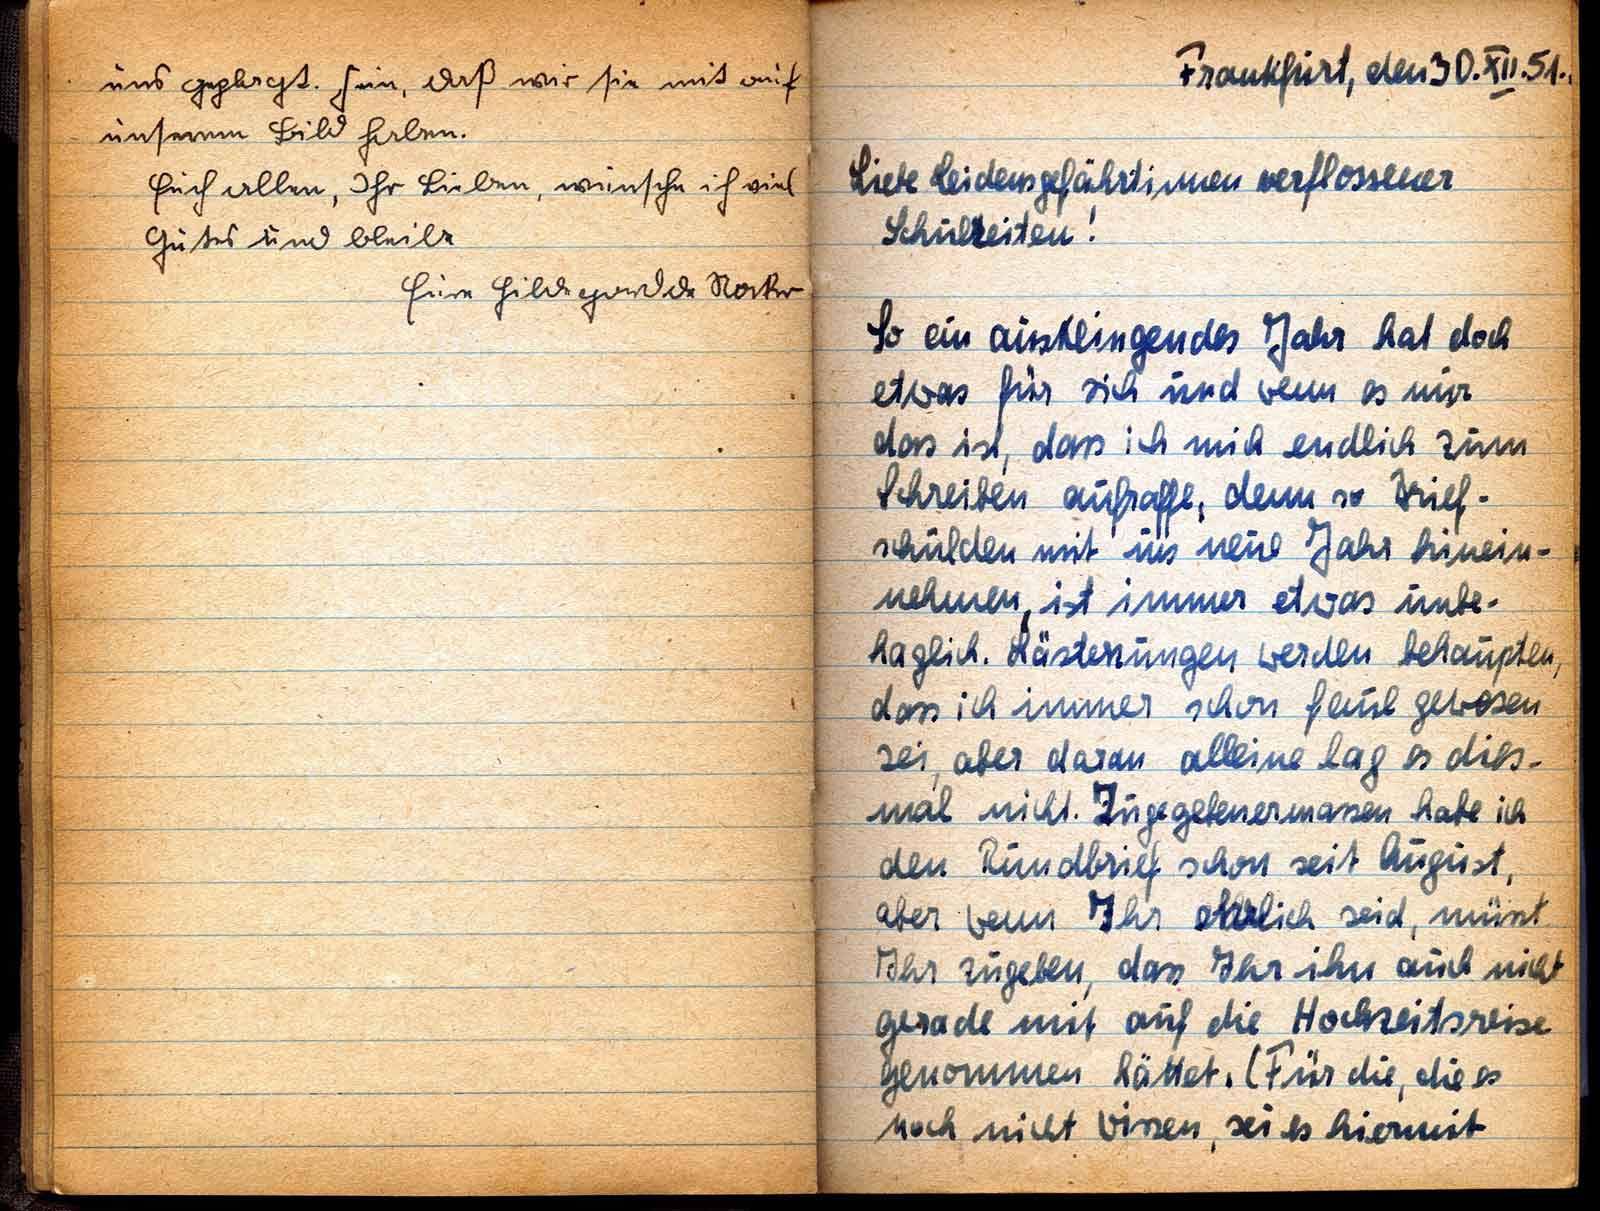 uns geplagt. Fein, daß wir sie mit auf
unserem Bild haben.
Euch allen, Ihr Lieben, wünsche ich viel
Gutes und bleibe
Eure Hildegard
Frankfurt, den 30.XII.51.
Liebe Leidensgefährtinnen verflossener
Schulzeiten!
So ein ausklingendes Jahr hat doch
etwas für sich und wenn es nur
das ist, dass ich mich endlich zum
Schreiben aufraffe, denn so Brief-
schulden mit ins neue Jahr hinein-
nehmen, ist immer etwas unbe-
haglich. Lästerzungen werden behaupten,
dass ich immer schon faul gewesen
sei, aber daran alleine lag es dies-
mal nicht. Zugegebenermassen habe ich
den Rundbrief schon seit August,
aber wenn Ihr ehrlich seid, müsst
Ihr zugeben, dass Ihr ihn auch nicht
gerade mit auf die Hochzeitsreise
genommen hättet. (Für die, die es
noch nicht wissen, sei es hiermit